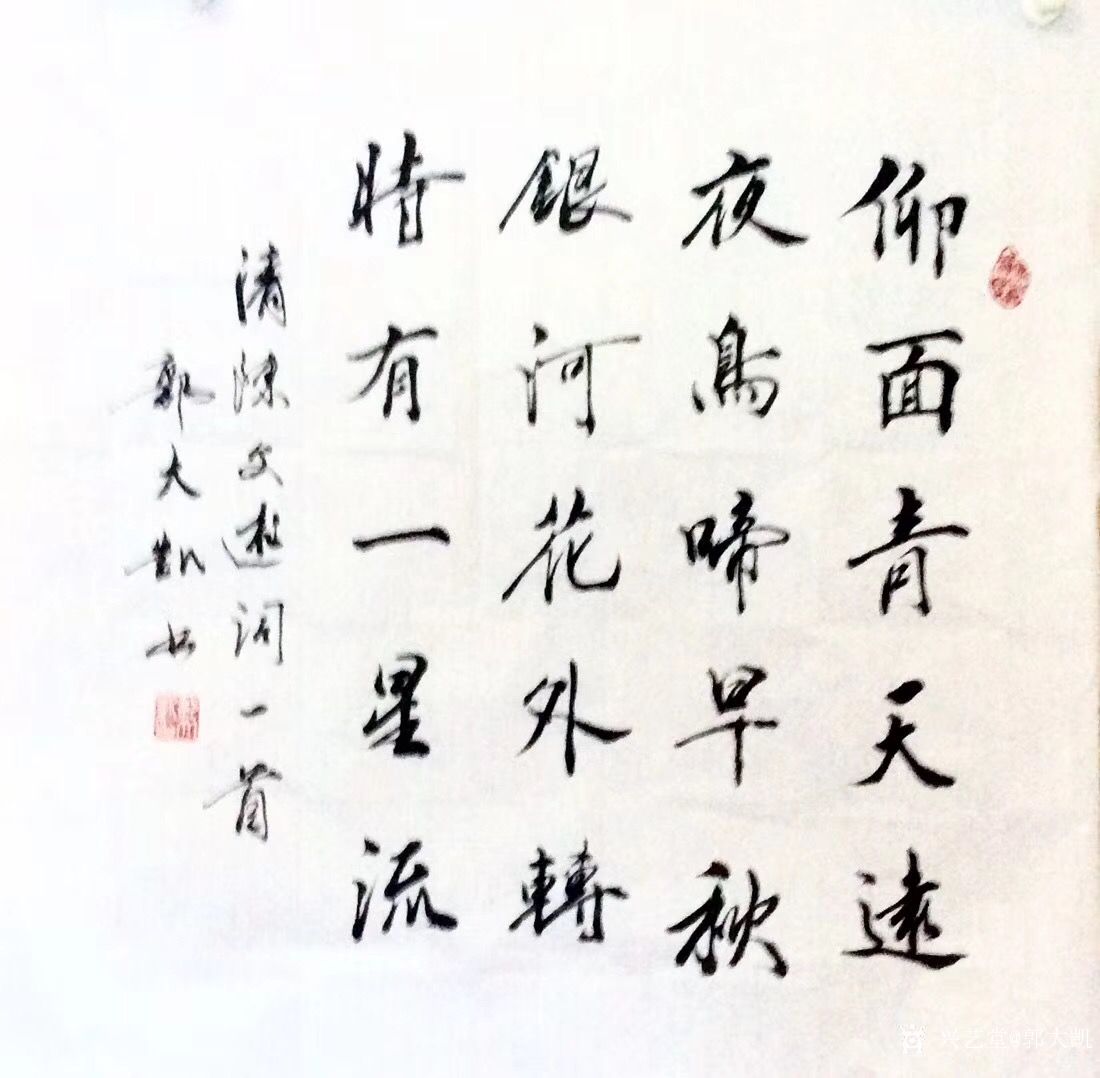 仰面青天遠
夜鳥啼早秋
銀河花外轉
時有一星流
清陳文述詞一首
郭大凱书
兴艺堂@郭大凯